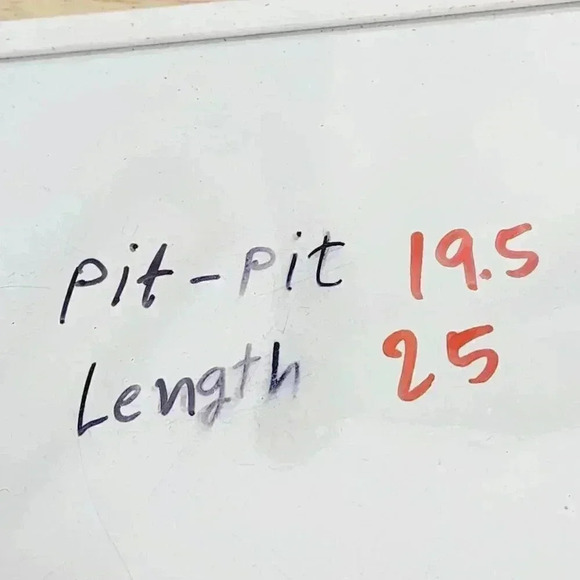 Pit-Pit 19.5
Length 25